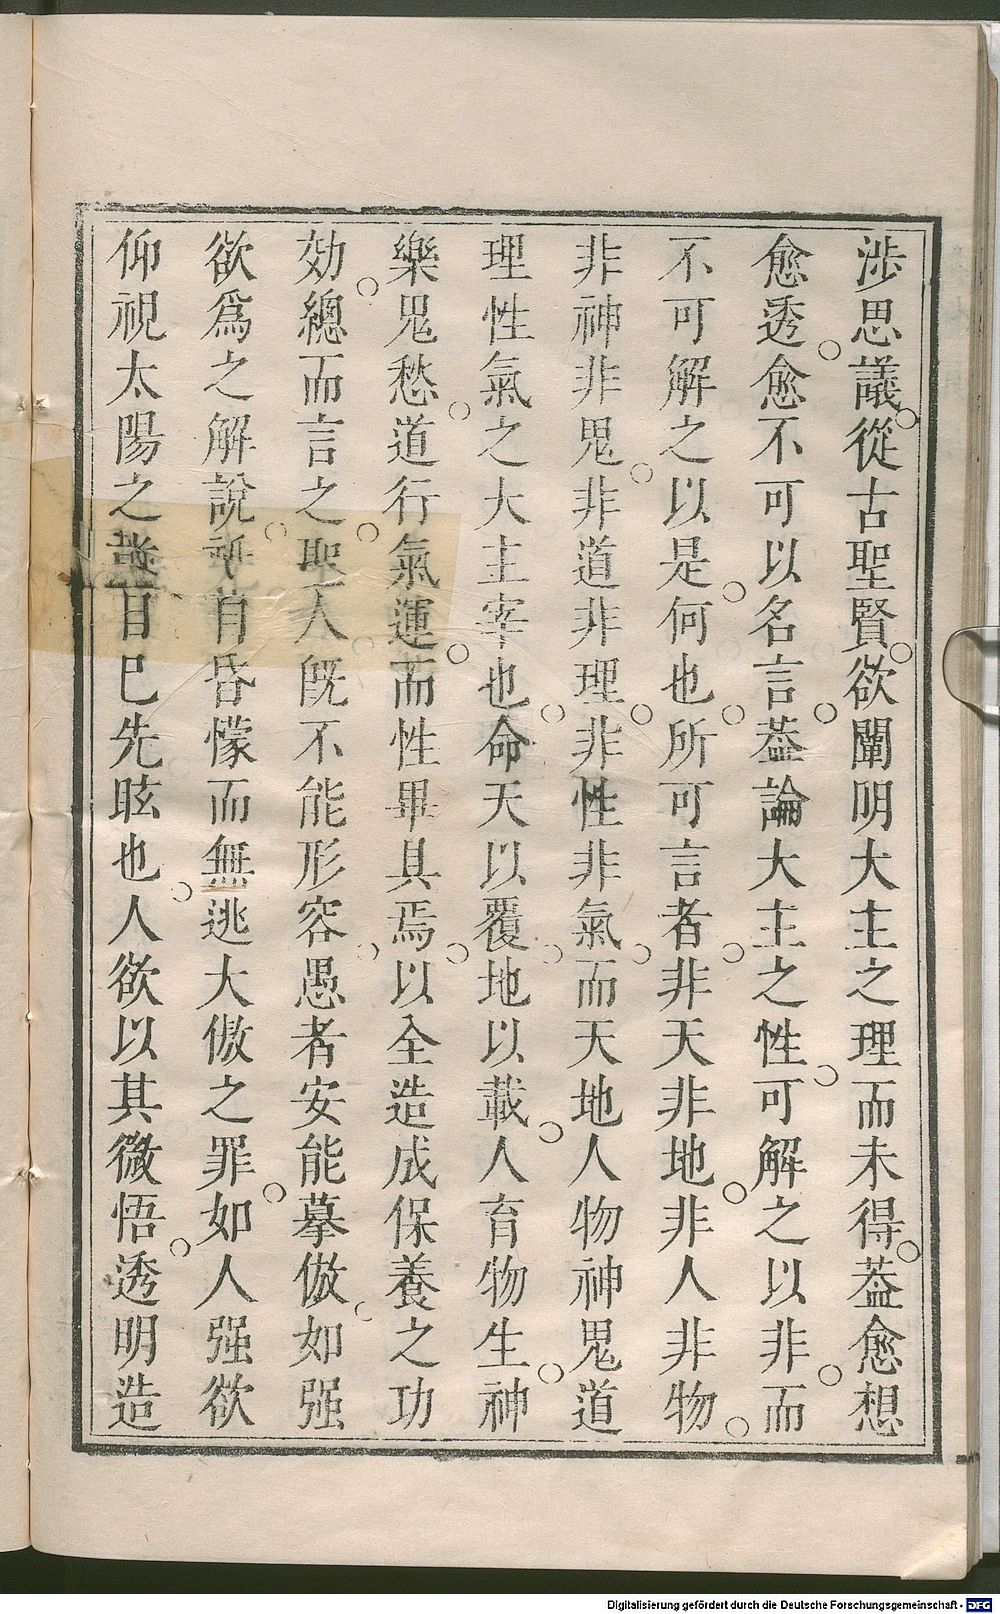 涉思議○從古聖賢○欲闡明大主之理而未得○葢愈想
愈透○愈不可以名言○葢論大主之性○可解之以非○而
不可解之以是○何也○所可言者○非天非地○非人非物○
非神非鬼○非道非理○非性非氣○而天地人物神鬼道
理性氣之大主宰也○命天以覆○地以載○人育物生○神
樂鬼愁○道行氣運○而性畢具焉○以全造成保養之功
効○總而言之○聖人既不能形容○愚者安能摹倣○如强
欲爲之解說○自昏懞而無逃大傲之罪○如人强欲
仰視太陽之 目巳先眩也○人欲以其微悟○透明造
Digitalisierung gefördert durch die Deutsche Forschungsgemeinschaft - DFG